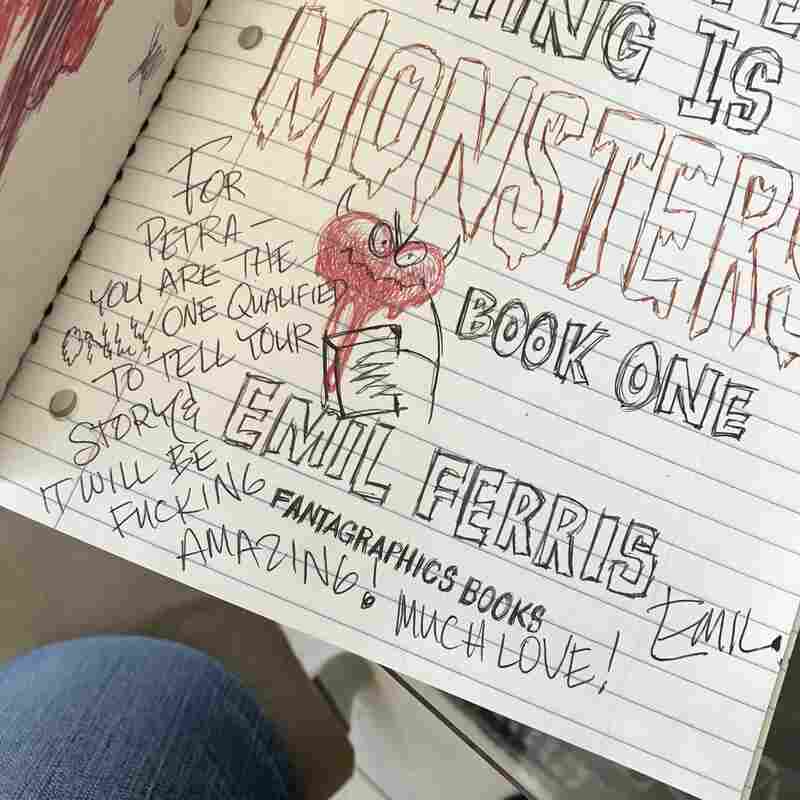 THING IS
MONSTERS
BOOK ONE
EMIL FERRIS
FANTAGRAPHICS BOOKS
FOR
PETRA —
YOU ARE THE
ONE QUALIFIED
TO TELL YOUR
STORY &
IT WILL BE
FUCKING
AMAZING!
MUCH LOVE!
EMIL.